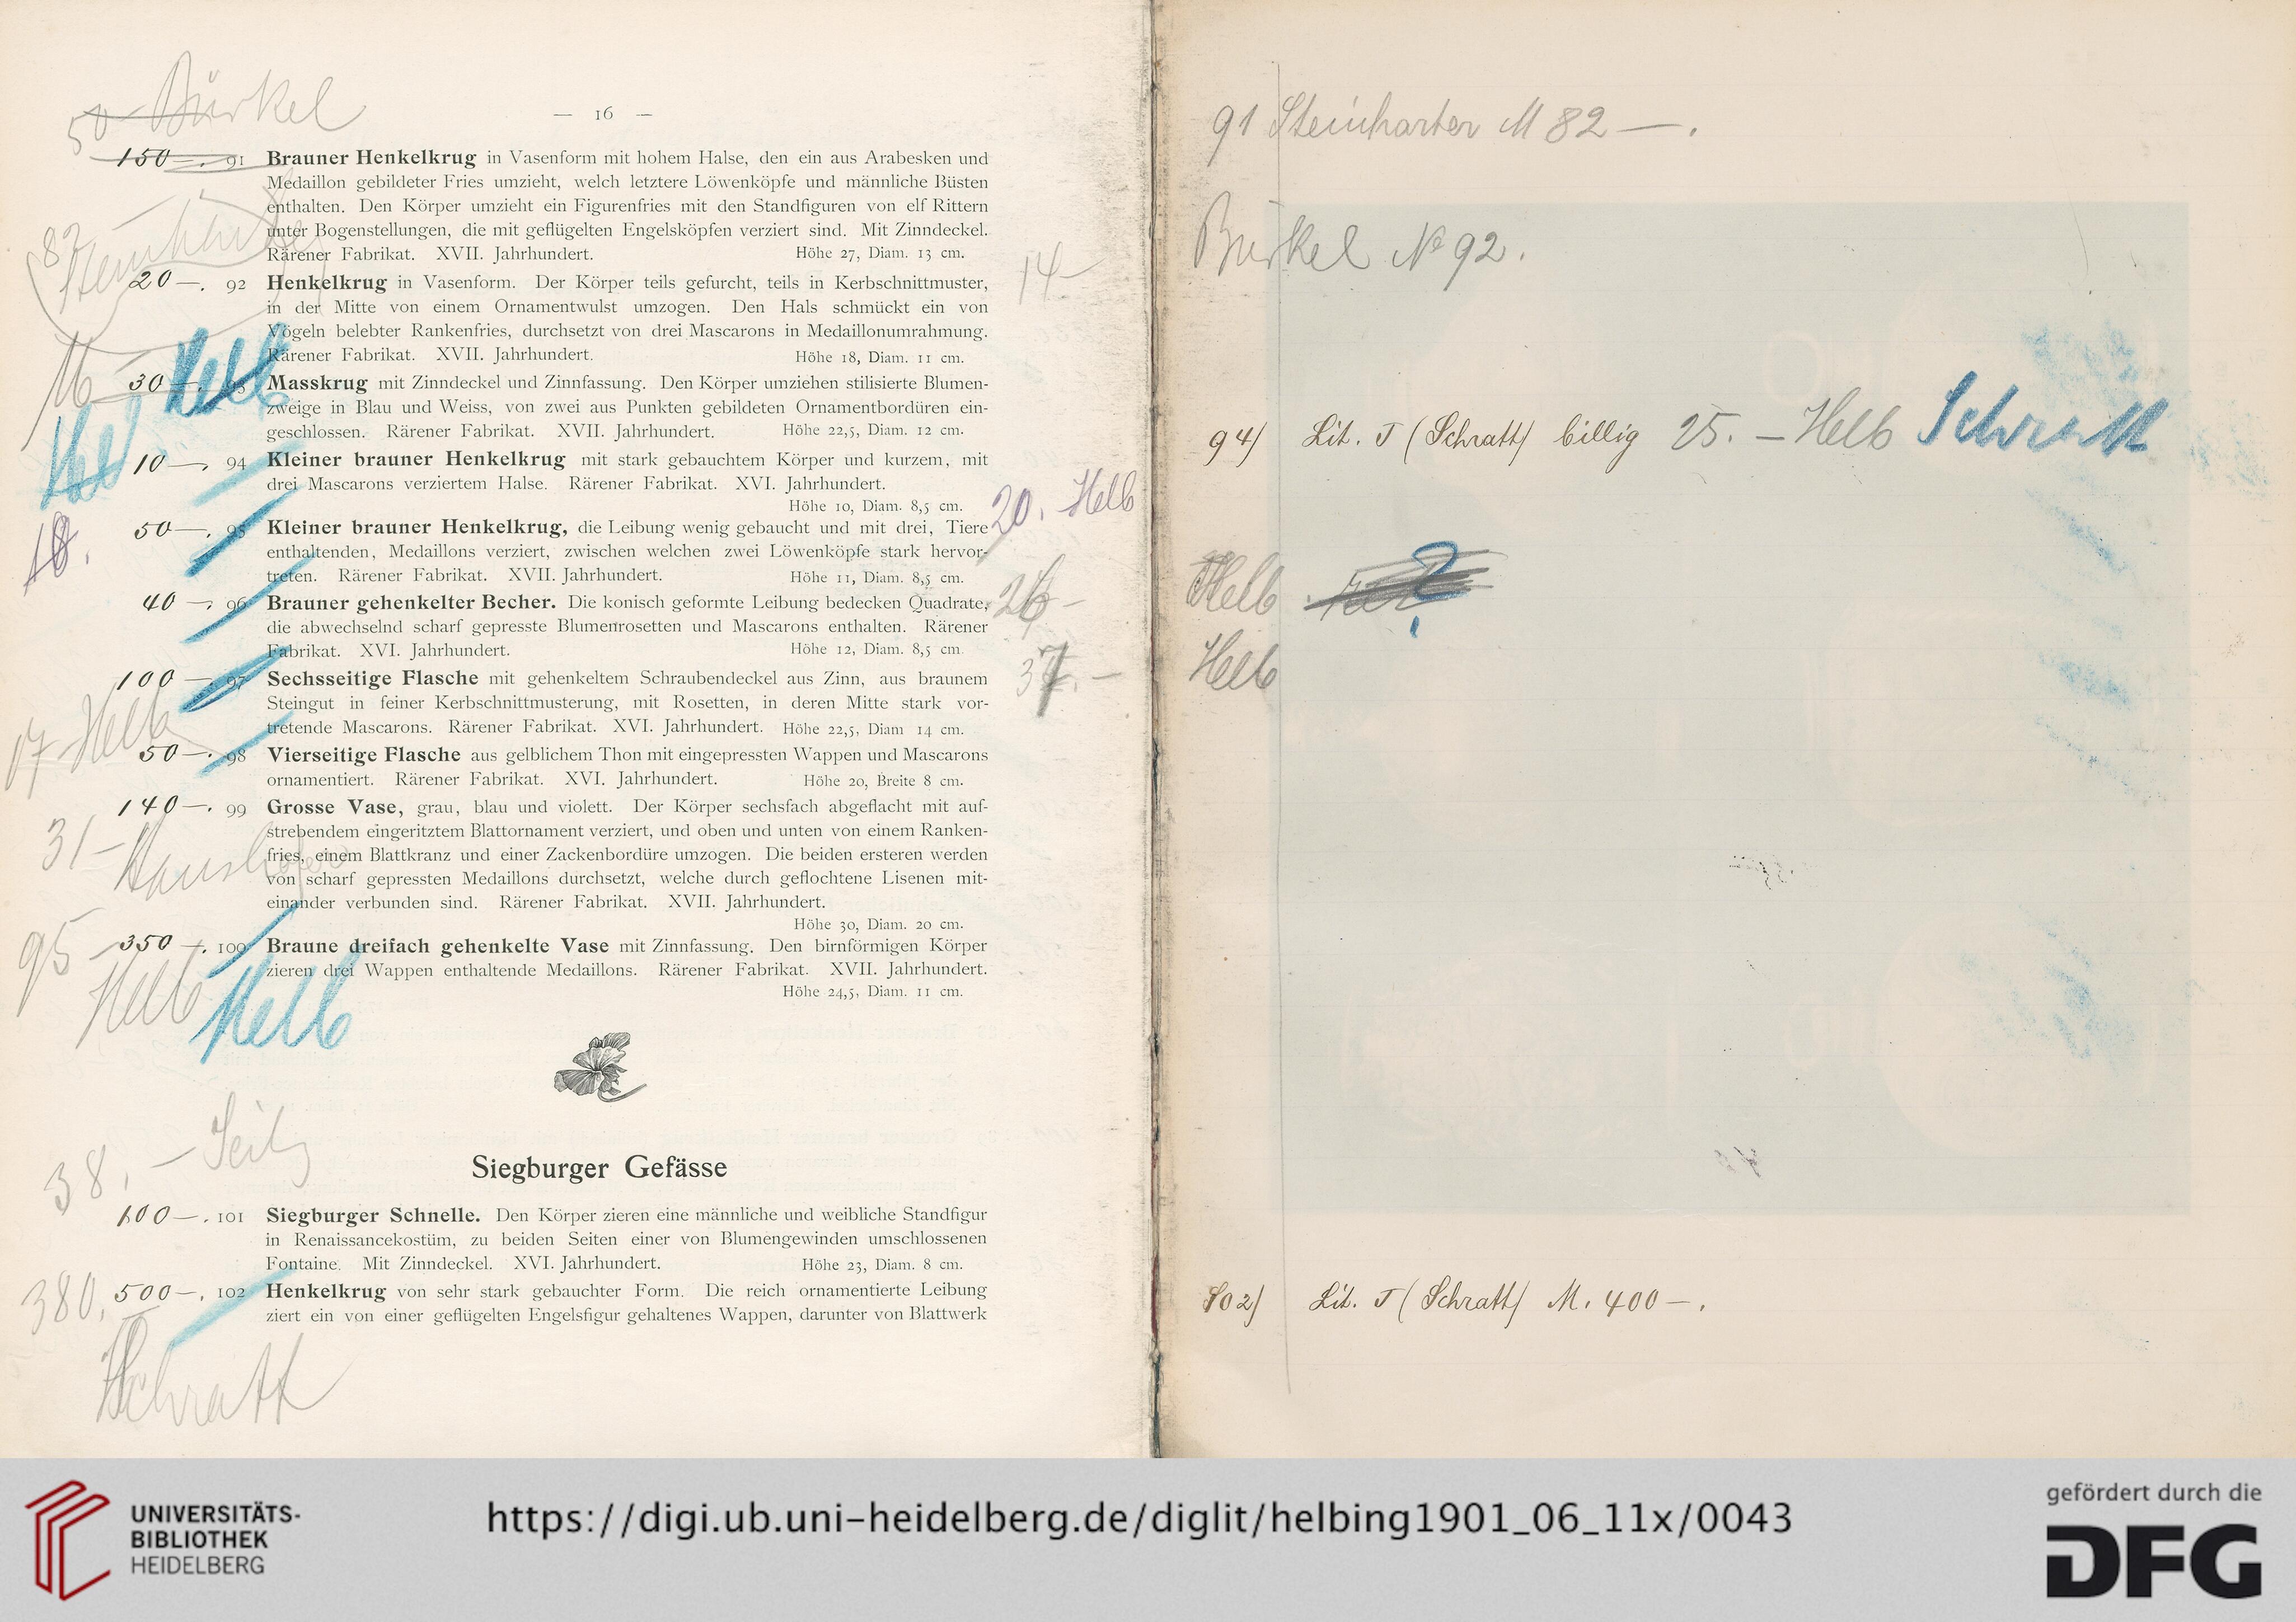 50 Bürkel
— 16 —
150—. 91 Brauner Henkelkrug in Vasenform mit hohem Halse, den ein aus Arabesken und
Medaillon gebildeter Fries umzieht, welch letztere Löwenköpfe und männliche Büsten
enthalten. Den Körper umzieht ein Figurenfries mit den Standfiguren von elf Rittern
unter Bogenstellungen, die mit geflügelten Engelsköpfen verziert sind. Mit Zinndeckel.
Rärener Fabrikat. XVII. Jahrhundert. Höhe 27, Diam. 13 cm.
82 Steinharter
20—. 92 Henkelkrug in Vasenform. Der Körper teils gefurcht, teils in Kerbschnittmuster, 14—
in der Mitte von einem Ornamentwulst umzogen. Den Hals schmückt ein von
Vögeln belebter Rankenfries, durchsetzt von drei Mascarons in Medaillonumrahmung.
Rärener Fabrikat. XVII. Jahrhundert. Höhe 18, Diam. 11 cm.
Helb
30—. 93 Masskrug mit Zinndeckel und Zinnfassung. Den Körper umziehen stilisierte Blumen-
zweige in Blau und Weiss, von zwei aus Punkten gebildeten Ornamentbordüren ein-
geschlossen. Rärener Fabrikat. XVII. Jahrhundert. Höhe 22,5, Diam. 12 cm.
Hel
10—. 94 Kleiner brauner Henkelkrug mit stark gebauchtem Körper und kurzem, mit
drei Mascarons verziertem Halse. Rärener Fabrikat. XVI. Jahrhundert.
Höhe 10, Diam. 8,5 cm. 20. Helb
18.
50—. 95 Kleiner brauner Henkelkrug, die Leibung wenig gebaucht und mit drei, Tiere
enthaltenden, Medaillons verziert, zwischen welchen zwei Löwenköpfe stark hervor-
treten. Rärener Fabrikat. XVII. Jahrhundert. Höhe 11, Diam. 8,5 cm.
40—. 96 Brauner gehenkelter Becher. Die konisch geformte Leibung bedecken Quadrate, 26—
die abwechselnd scharf gepresste Blumenrosetten und Mascarons enthalten. Rärener
Fabrikat. XVI. Jahrhundert. Höhe 12, Diam. 8,5 cm
100—. 97 Sechsseitige Flasche mit gehenkeltem Schraubendeckel aus Zinn, aus braunem 37.—
Steingut in feiner Kerbschnittmusterung, mit Rosetten, in deren Mitte stark vor-
tretende Mascarons. Rärener Fabrikat. XVI. Jahrhundert. Höhe 22,5, Diam 14 cm.
17 Helb
50—. 98 Vierseitige Flasche aus gelblichem Thon mit eingepressten Wappen und Mascarons
ornamentiert. Rärener Fabrikat. XVI. Jahrhundert. Höhe 20, Breite 8 cm.
140—. 99 Grosse Vase, grau, blau und violett. Der Körper sechsfach abgeflacht mit auf-
strebendem eingeritztem Blattornament verziert, und oben und unten von einem Ranken-
fries, einem Blattkranz und einer Zackenbordüre umzogen. Die beiden ersteren werden
von scharf gepressten Medaillons durchsetzt, welche durch geflochtene Lisenen mit-
einander verbunden sind. Rärener Fabrikat. XVII. Jahrhundert.
Höhe 30, Diam. 20 cm.
31— Haushofer
95—
350—. 100 Braune dreifach gehenkelte Vase mit Zinnfassung. Den birnförmigen Körper
zieren drei Wappen enthaltende Medaillons. Rärener Fabrikat. XVII. Jahrhundert.
Höhe 24,5, Diam. 11 cm.
Helb Helb
38.— Seitz
Siegburger Gefässe
100—. 101 Siegburger Schnelle. Den Körper zieren eine männliche und weibliche Standfigur
in Renaissancekostüm, zu beiden Seiten einer von Blumengewinden umschlossenen
Fontaine. Mit Zinndeckel. XVI. Jahrhundert. Höhe 23, Diam. 8 cm.
380.
500—. 102 Henkelkrug von sehr stark gebauchter Form. Die reich ornamentierte Leibung
ziert ein von einer geflügelten Engelsfigur gehaltenes Wappen, darunter von Blattwerk
Schratt
91 Steinharter M 82—.
Bürkel № 92.
94) Lit. J (Schratt) billig 25.— Helb Schratt
Helb ?
Helb
102) Lit. J (Schratt) M. 400—.
UNIVERSITÄTS-
BIBLIOTHEK
HEIDELBERG
https://digi.ub.uni-heidelberg.de/diglit/helbing1901_06_11x/0043
gefördert durch die
DFG